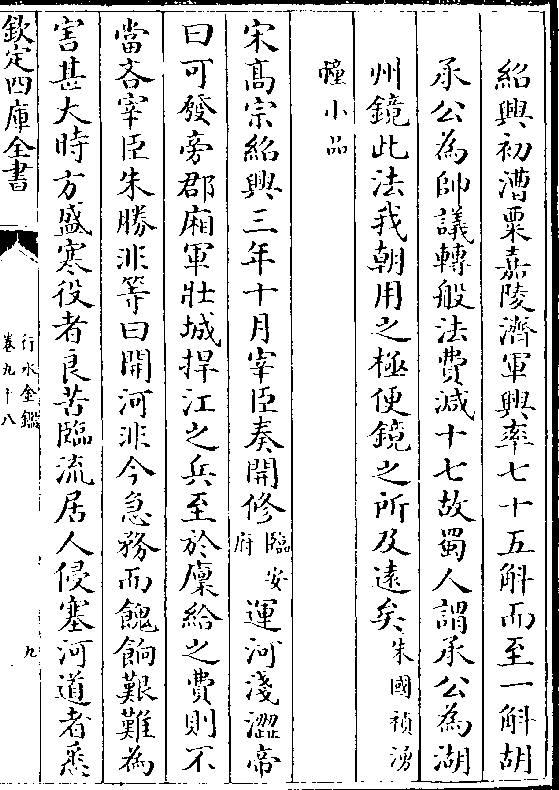 紹興初漕粟嘉陵濟軍興率七十五斛而至一斛胡
承公為帥議轉般法費減十七故蜀人謂承公為湖
州鏡此法我朝用之極便鏡之所及遠矣朱國禎湧
幢小品
宋髙宗紹興三年十月宰臣奏開修臨安府運河淺澀帝
曰可發旁郡廂軍壯城捍江之兵至於廩給之費則不
當吝宰臣朱勝非等曰開河非今急務而餽餉艱難為
害甚大時方盛寒役者良苦臨流居人侵塞河道者悉
欽定四庫全書
行水金鑑
卷九十八
九